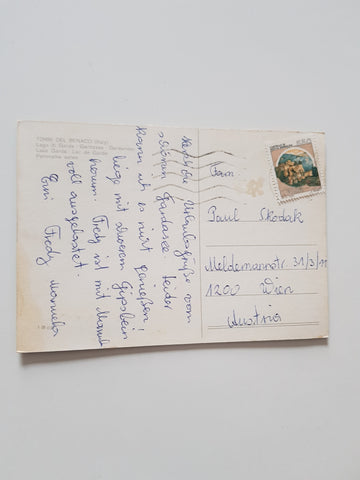 TORRI DEL BENACO (Italy)
Lago di Garda - Gardasee - Gardameer
Lake Garda - Lac de Garde
Panorama
Herzliche Urlaubsgrüße vom
schönen Gardasee. Leider
kann ich es nicht genießen!
liege mit schwerem Gipsbein
herum. Fredy ist mit Manuela
voll ausgelastet.
Eure Fredy Manuela
Fam
Paul Skodak
Meldemannstr. 31/3/11
1200 Wien
Austria